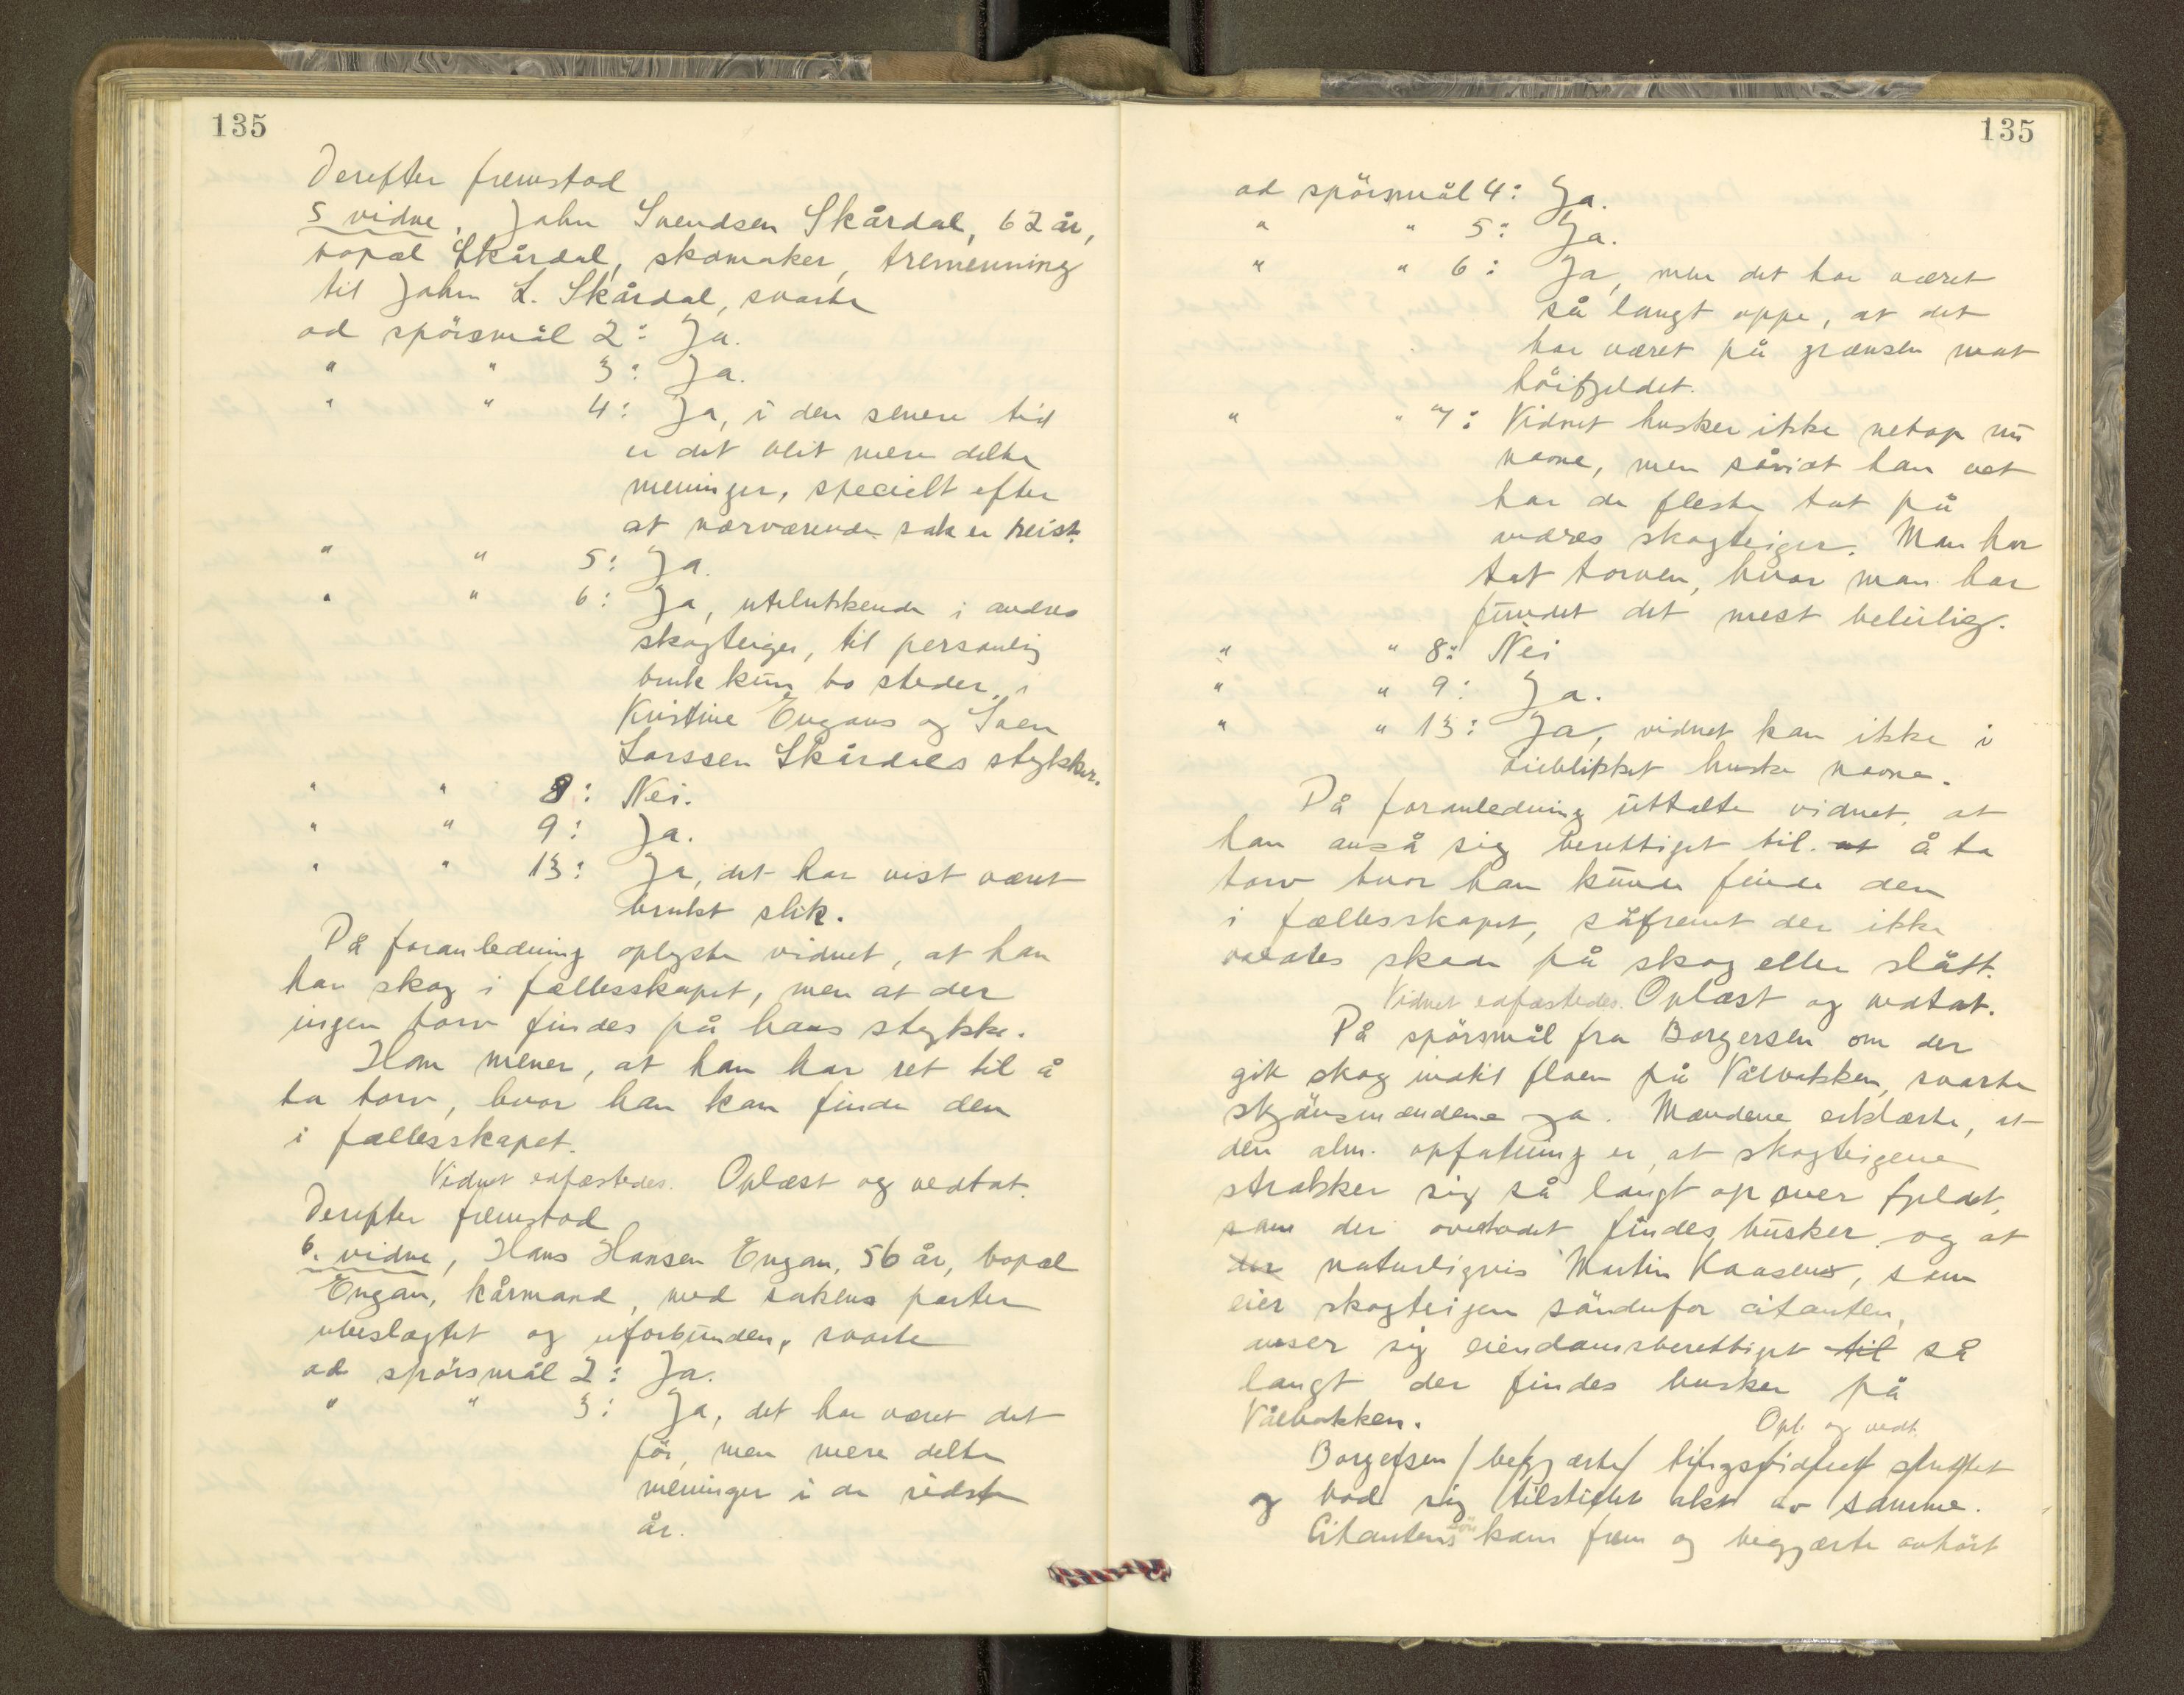 135
Derefter fremstod
5 vidne, John Svendsen Skårdal, 62 år,
bopæl Skårdal, skomaker, tremenning
til John L. Skårdal, svarte
ad spörsmål 2: Ja.
" " 3: Ja.
" " 4: Ja, i den senere tid
er det blit mere delte
meninger, specielt efter
at nærværende sak er reist.
" " 5: Ja.
" " 6: Ja, utelukkende i andres
skogteiger, til personlig
bruk kun to steder, i
Kristine Engans og Sven
Larssen Skårdals stykker.
" " 8: Nei.
" " 9: Ja.
" " 13: Ja, det har vist været
brukt slik.
På foranledning oplyste vidnet, at han
har skog i fællesskapet, men at der
ingen torv findes på hans stykke.
Han mener, at han har ret til å
ta torv, hvor han kan finde den
i fællesskapet.
Vidnet edfæstedes. Oplæst og vedtat.
Derefter fremstod
6. vidne, Hans Hansen Engan, 56 år, bopæl
Engan, kårmand, med sakens parter
ubeslægtet og uforbunden, svarte
ad spörsmål 2: Ja.
" " 3: Ja, det har været det
för, men mere delte
meninger i de sidste
år.
135
ad spörsmål 4: Ja.
" " 5: Ja.
" " 6: Ja, men det har været
så langt oppe, at det
har været på grænsen mot
höifjeldet.
" " 7: Vidnet husker ikke netop nu
navne, men såvidt han vet
har de fleste tat på
andres skogteiger. Man har
tat torven, hvor man har
fundet det mest beleilig.
" " 8: Nei
" " 9: Ja.
" " 13: Ja, vidnet kan ikke i
öieblikket huske navne.
På foranledning uttalte vidnet, at
han anså sig berettiget til at å ta
torv hvor han kunde finde den
i fællesskapet, såfremt der ikke
voldtes skade på skog eller slått.
Vidnet edfæstedes. Oplæst og vedtat.
På spörsmål fra Borgersen om der
gik skog indtil flaen på Vålbakken, svarte
skjönsmændene ja. Mændene erklærte, at
den alm. opfatning er, at skogteigene
strækker sig så langt op over fjeldet,
som der overhodet findes busker, og at
der naturligvis Martin Kaasens, som
eier skogteigen söndenfor citanten,
anser sig eiendomsberettiget til så
langt der findes busker på
Vålbakken.
Opl. og vedt.
Borgersen begjærte tingsvidnet sluttet
og bad sig tilstillet akt av samme.
Citantens sön kom frem og begjærte avhört